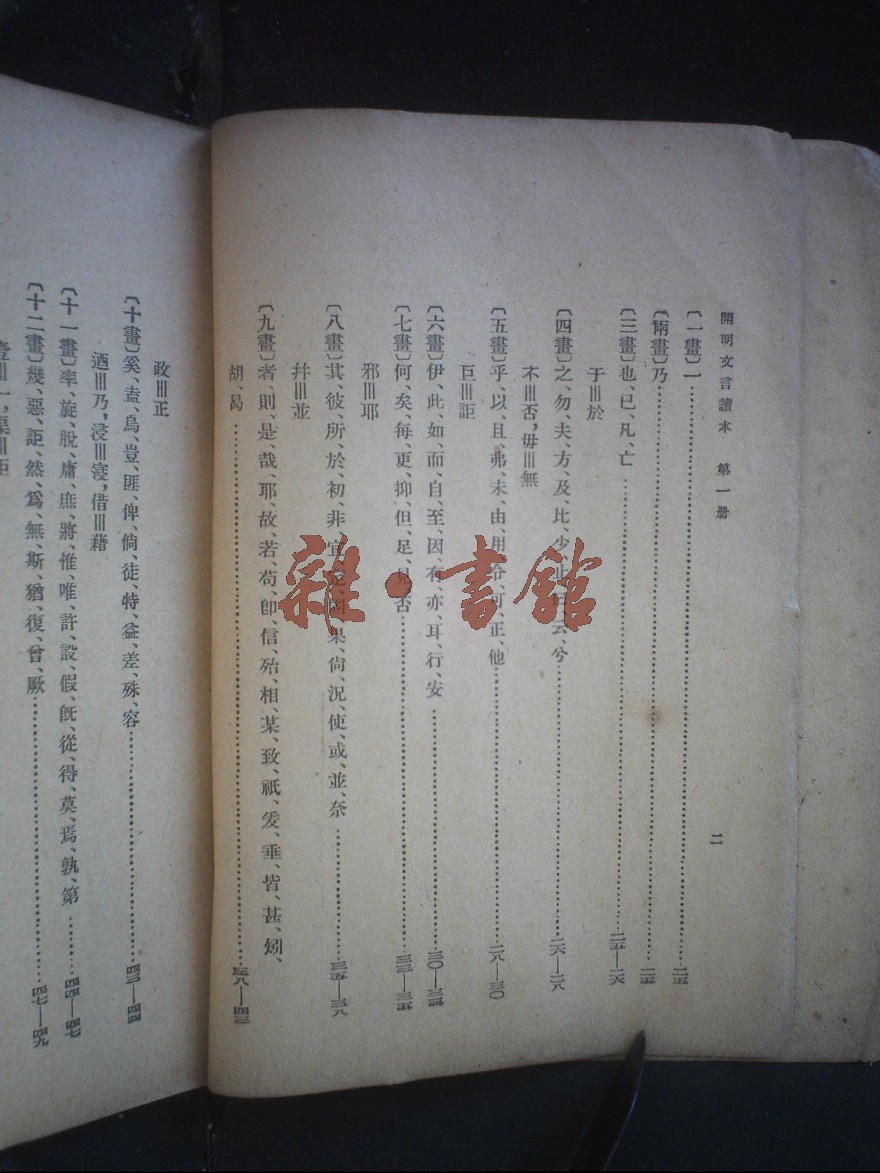 開明文言讀本　第一册
二
〔一畫〕一……二五
〔兩畫〕乃……二五
〔三畫〕也、已、凡、亡……二五—二六
于≡於
〔四畫〕之、勿、夫、方、及、比、少、止、曰、云、兮……二六—二八
不≡否，毋≡無
〔五畫〕乎、以、且、弗、未、由、用、令、可、正、他……二八—三〇
巨≡詎
〔六畫〕伊、此、如、而、自、至、因、有、亦、耳、行、安……三〇—三三
〔七畫〕何、矣、每、更、抑、但、足、見、否……三三—三五
邪≡耶
〔八畫〕其、彼、所、於、初、非、宜、固、果、尙、況、使、或、並、奈……三五—三八
幷≡並
〔九畫〕者、則、是、哉、耶、故、若、苟、卽、信、殆、相、某、致、祇、爰、垂、皆、甚、矧、
胡、曷……三八—四三
政≡正
〔十畫〕奚、盍、烏、豈、匪、俾、倘、徒、特、益、差、殊、容……四三—四四
迺≡乃，浸≡寖，借≡藉
〔十一畫〕率、旋、脫、庸、庶、將、惟、唯、許、設、假、旣、從、得、莫、焉、孰、第……四四—四七
〔十二畫〕幾、惡、詎、然、爲、無、斯、猶、復、曾、厥……四七—四九
壹≡一，渠≡詎
雜·書館